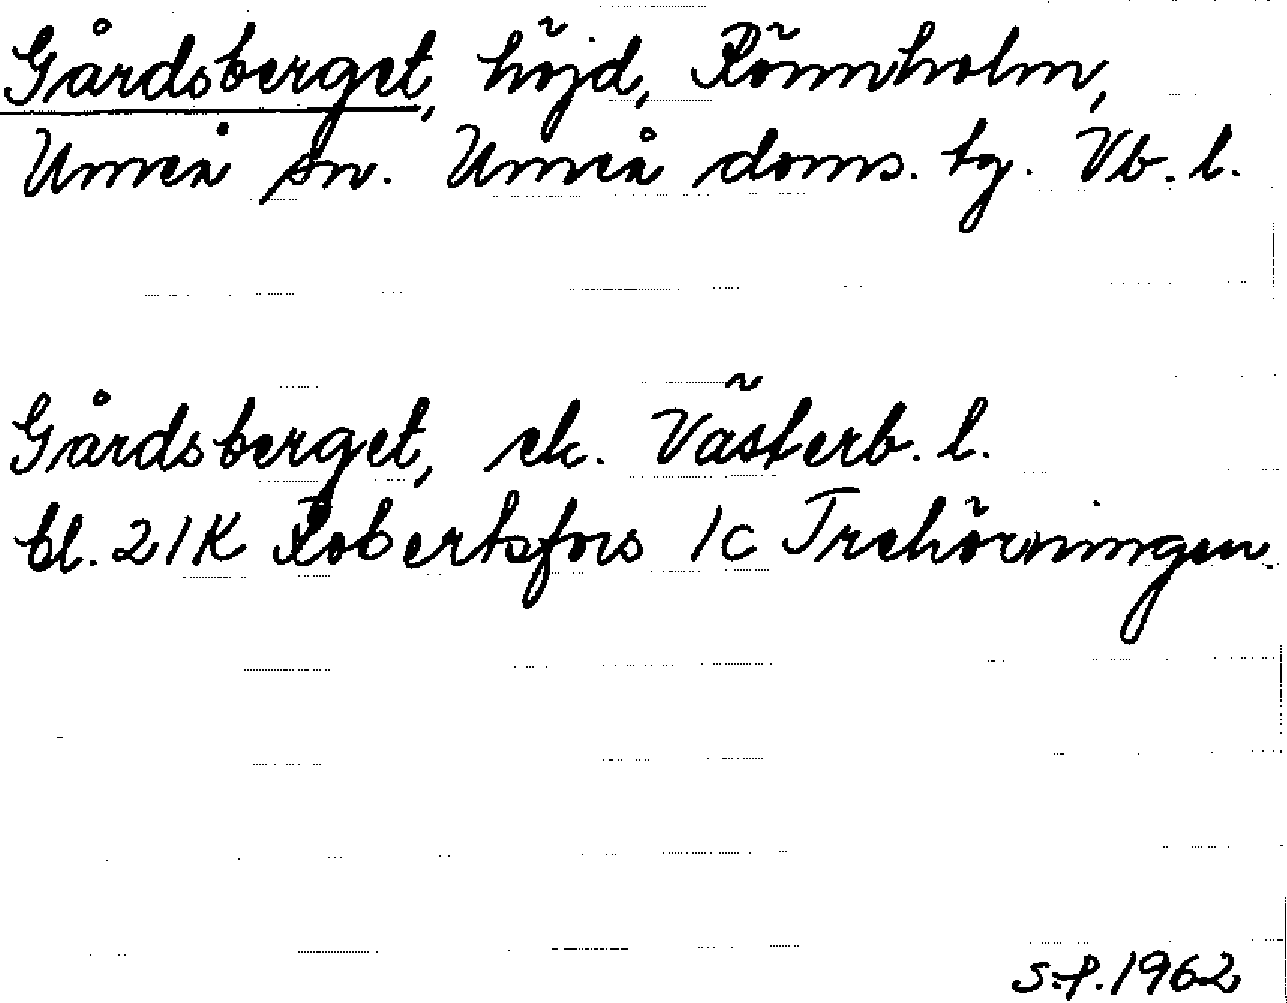 Gårdsberget, höjd, Rönnholm,
Umeå sn. Umeå doms. tg. Vb. l.
Gårdsberget, ek. Västerb. l.
bl. 21K Robertsfors 1c Trehörningen
S.f. 1962